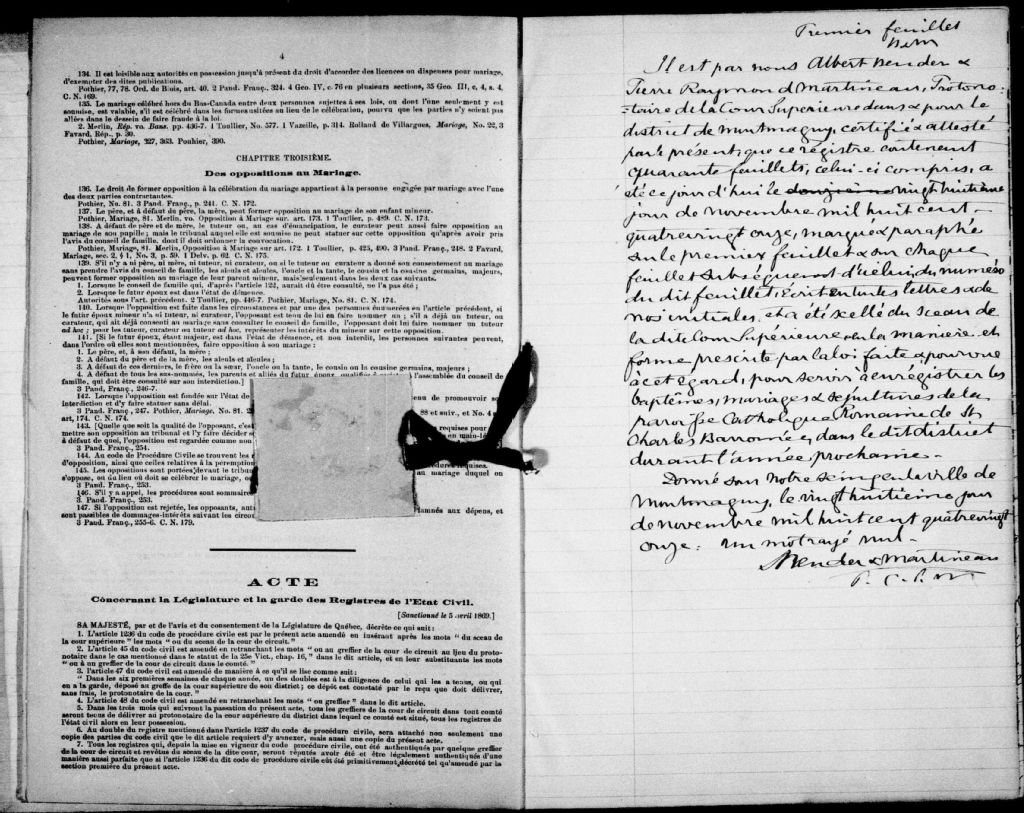 4
134. Il est loisible aux autorités en possession jusqu'à présent du droit d'accorder des licences ou dispenses pour mariage,
d'exempter des dites publications.
Pothier, 77, 78. Ord. de Blois, art. 40. 2 Pand. Franç., 324. 4 Geo. IV, c. 76 en plusieurs sections, 35 Geo. III, c. 4, s. 4,
C. N. 169.
135. Le mariage célébré hors du Bas-Canada entre deux personnes sujettes à ses lois, ou dont l'une seulement y est
soumise, est valable, s'il est célébré dans les formes usitées au lieu de la célébration, pourvu que les parties n'y soient pas
allées dans le dessein de faire fraude à la loi.
2. Merlin, Rép. vo. Bans. pp. 436-7. 1 Toullier, No. 577. 1 Vazeille, p. 314. Rolland de Villargues, Mariage, No. 22, 3
Favard, Rép., p. 30.
Pothier, Mariage, 227, 363. Pouhier, 390.
CHAPITRE TROISIÈME.
Des oppositions au Mariage.
136. Le droit de former opposition à la célébration du mariage appartient à la personne engagée par mariage avec l'une
des deux parties contractantes.
Pothier, No. 81. 3 Pand. Franç., p. 241. C. N. 172.
137. Le père, et à défaut du père, la mère, peut former opposition au mariage de son enfant mineur.
Pothier, Mariage, 81. Merlin, vo. Opposition à Mariage sur. art. 173. 1 Toullier, p. 489. C. N. 173.
138. A défaut de père et de mère, le tuteur ou, au cas d'émancipation, le curateur peut aussi faire opposition au
mariage de son pupille ; mais le tribunal auquel elle est soumise ne peut statuer sur cette opposition qu'après avoir pris
l'avis du conseil de famille, dont il doit ordonner la convocation.
Pothier, Mariage, 81. Merlin, Opposition à Mariage sur art. 172. 1 Toullier, p. 425, 490. 3 Pand. Franç., 248. 2 Favard,
Mariage, sec. 2, § 1, No. 3, p. 59. 1 Delv. p. 62. C. N. 175.
139. S'il n'y a ni père, ni mère, ni tuteur, ni curateur, ou si le tuteur ou curateur a donné son consentement au mariage
sans prendre l'avis du conseil de famille, les aïeuls et aïeules, l'oncle et la tante, le cousin et la cousine germains, majeurs,
peuvent former opposition au mariage de leur parent mineur, mais seulement dans les deux cas suivants.
1. Lorsque le conseil de famille qui, d'après l'article 122, aurait dû être consulté, ne l'a pas été ;
2. Lorsque le futur époux est dans l'état de démence.
Autorités sous l'art. précédent. 2 Toullier, pp. 446-7. Pothier, Mariage, No. 81. C. N. 174.
140. Lorsque l'opposition est faite dans les circonstances et par une des personnes énumérées en l'article précédent, si
le futur époux mineur n'a ni tuteur, ni curateur, l'opposant est tenu de lui en faire nommer un ; s'il a déjà un tuteur, ou
curateur, qui ait déjà consenti au mariage sans consulter le conseil de famille, l'opposant doit lui faire nommer un tuteur
ad hoc ; pour les tuteur, curateur ou tuteur ad hoc, représenter les intérêts du mineur sur cette opposition.
141. [Si le futur époux, étant majeur, est dans l'état de démence, et non interdit, les personnes suivantes peuvent,
dans l'ordre où elles sont mentionnées, faire opposition à son mariage :
1. Le père, et, à son défaut, la mère ;
2. A défaut du père et de la mère, les aïeuls et aïeules ;
3. A défaut de ces derniers, le frère ou la sœur, l'oncle ou la tante, le cousin ou la cousine germains, majeurs ;
4. A défaut de tous les sus-nommés, les parents et alliés du futur époux, qualifiés à l'assemblée du conseil de
famille, qui doit être consulté sur son interdiction.]
3 Pand. Franç., 246-7.
142. Lorsque l'opposition est fondée sur l'état de enu de promouvoir so
interdiction et d'y faire statuer sans délai.
3 Pand. Franç., 247. Pothier, Mariage, No. 81. 2 88 et suiv., et No. 4
art. 174, C. N. 174.
143. [Quelle que soit la qualité de l'opposant, c'es requises pour
mettre son opposition au tribunal et l'y faire décider en main-le
à défaut de quoi, l'opposition est regardée comme non
3 Pand. Franç., 254.
144. Au code de Procédure Civile se trouvent les
d'opposition, ainsi que celles relatives à la peremption requises.
145. Les oppositions sont portées devant le tribun au mariage duquel on
s'oppose, ou au lieu où doit se célébrer le mariage, ou
3 Pand. Franç., 253.
146. S'il y a appel, les procédures sont sommaires
3. Pand. Franç., 253.
147. Si l'opposition est rejetée, les opposants, aut damnés aux dépens, et
sont passibles de dommages-intérêts suivant les circon
3 Pand. Franç., 255-6. C. N. 179.
ACTE
Concernant la Législature et la garde des Registres de l'Etat Civil.
[Sanctionné le 5 avril 1869.]
SA MAJESTÉ, par et de l'avis et du consentement de la Législature de Québec, décrète ce qui suit :
1. L'article 1236 du code de procédure civile est par le présent acte amendé en insérant après les mots " du sceau de
la cour supérieure " les mots " ou du sceau de la cour de circuit."
2. L'article 45 du code civil est amendé en retranchant les mots " ou au greffier de la cour de circuit au lieu du proto-
notaire dans le cas mentionné dans le statut de la 25e Vict., chap. 16," dans le dit article, et en leur substituant les mots
" ou à un greffier de la cour de circuit dans le comté."
3. l'article 47 du code civil est amendé de manière à ce qu'il se lise comme suit:
" Dans les six premières semaines de chaque année, un des doubles est à la diligence de celui qui les a tenus, ou qui
en a la garde, déposé au greffe de la cour supérieure de son district ; ce dépôt est constaté par le reçu que doit délivrer,
sans frais, le protonotaire de la cour."
4. L'article 48 du code civil est amendé en retranchant les mots " ou greffier " dans le dit article.
5. Dans les trois mois qui suivront la passation du présent acte, tous les greffiers de la cour de circuit dans tout comté
seront tenus de délivrer au protonotaire de la cour supérieure du district dans lequel ce comté est situé, tous les registres de
l'état civil alors en leur possession.
6. Au double du registre mentionné dans l'article 1237 du code de procédure civile, sera attaché non seulement une
copie des parties du code civil que le dit article requiert d'y annexer, mais aussi une copie du présent acte.
7. Tous les registres qui, depuis la mise en vigueur du code procédure civile, ont été authentiqués par quelque greffier
de la cour de circuit et revêtus du sceau de la dite cour, seront réputés avoir été et être légalement authentiqués d'une
manière aussi parfaite que si l'article 1236 du dit code de procédure civile eût été primitivement décrété tel qu'amendé par la
section première du présent acte.
Premier feuillet
B&M
Il est par nous Albert Bender &
Pierre Raymond Martineau, Protono-
-taire de la Cour Supérieure dans & pour le
district de Montmagny, certifié & attesté
par le présent, que ce régistre contenant
quarante feuillets, celui-ci compris, a
été ce jour d'hui le douzième vingt huitième
jour de novembre mil huit cent
quatrevingt onze, marqué & paraphé
sur le premier feuillet & sur chaque
feuillet subséquent d'icelui, du numéro
du dit feuillet, écrit en toutes lettres & de
nos initiales, et a été scellé du sceau de
la dite Cour Supérieure en la manière et
forme prescrite par la loi faite & pourvue
à cet égard, pour servir à enrégistrer les
baptêmes, mariages & sépultures de la
paroisse Catholique Romaine de St
Charles Barromé e, dans le dit district
durant l'année prochaine.
Donné sous notre seing en la ville de
Montmagny, le vingt huitième jour
de novembre mil huit cent quatrevingt
onze. Un mot rayé nul.
Bender & Martineau
P. C. S. M